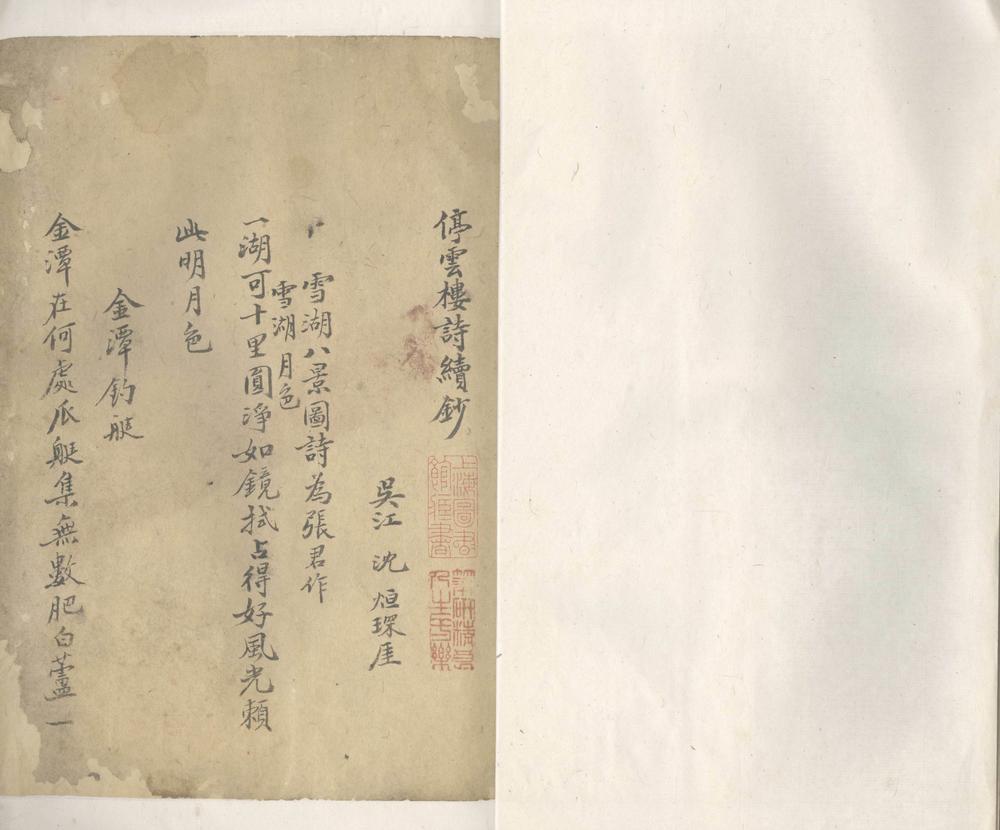 停雲樓詩續鈔
上海圖書館藏書
吳江 沈烜琛厓
雪湖八景圖詩為張君作
雪湖月色
一湖可十里圓淨如鏡拭占得好風光賴
此明月色
金潭釣艇
金潭在何處瓜艇集無數肥白蘆一